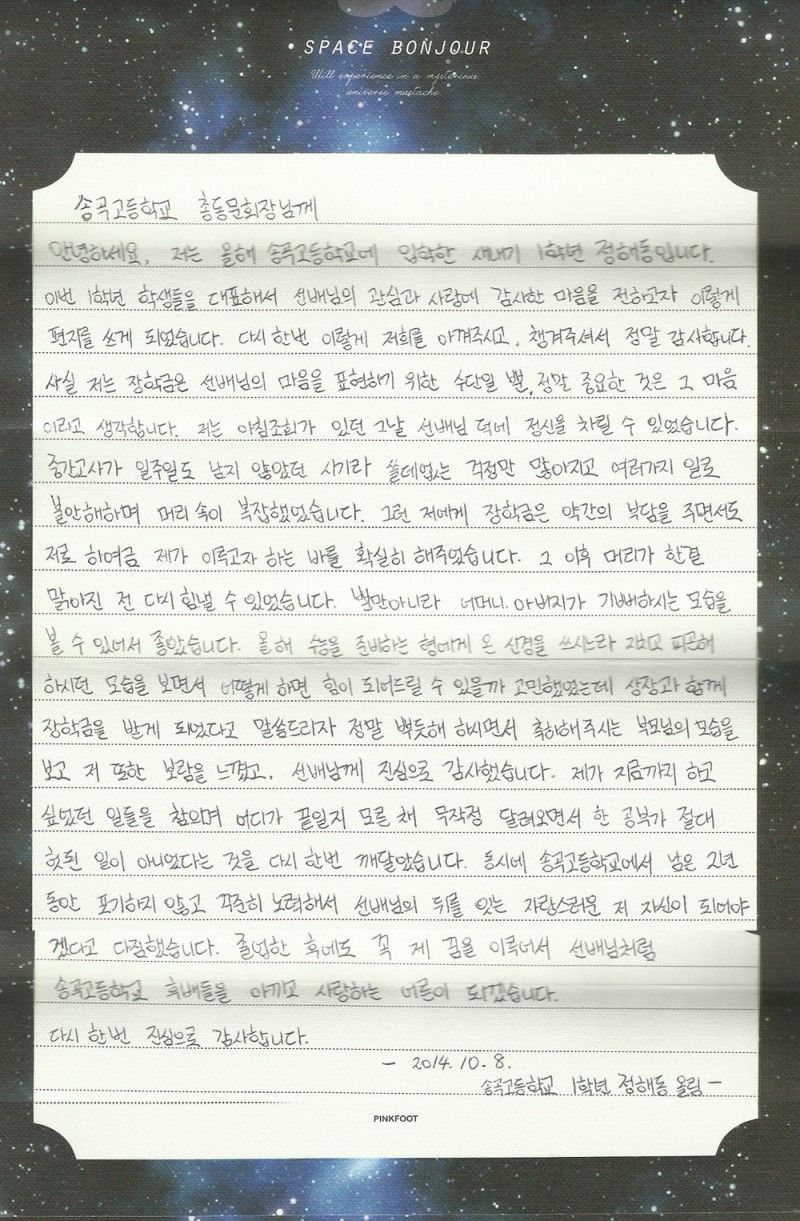 SPACE BONJOUR
Will experience in a mysterious
universe mustache.
송곡고등학교 총동문회장님께
안녕하세요, 저는 올해 송곡고등학교에 입학한 새내기 1학년 정해동입니다.
이번 1학년 학생들을 대표해서 선배님의 관심과 사랑에 감사한 마음을 전하고자 이렇게
편지를 쓰게 되었습니다. 다시 한번 이렇게 저희를 아껴주시고, 챙겨주셔서 정말 감사합니다.
사실 저는 장학금은 선배님의 마음을 표현하기 위한 수단일 뿐, 정말 중요한 것은 그 마음
이라고 생각합니다. 저는 아침조회가 있던 그날 선배님 덕에 정신을 차릴 수 있었습니다.
중간고사가 일주일도 남지 않았던 시기라 쓸데없는 걱정만 많아지고 여러가지 일로
불안해하며 머리 속이 복잡했었습니다. 그런 저에게 장학금은 약간의 부담을 주면서도
저로 하여금 제가 이루고자 하는 바를 확실히 해주었습니다. 그 이후 머리가 한결
맑아진 전 다시 힘낼 수 있었습니다. 뿐만아니라 어머니, 아버지가 기뻐하시는 모습을
볼 수 있어서 좋았습니다. 올해 수능을 준비하는 형에게 온 신경을 쓰시느라 지치고 피곤해
하시던 모습을 보면서 어떻게 하면 힘이 되어드릴 수 있을까 고민했었는데 상장과 함께
장학금을 받게 되었다고 말씀드리자 정말 뿌듯해 하시면서 축하해주시는 부모님의 모습을
보고 저 또한 보람을 느꼈고, 선배님께 진심으로 감사했습니다. 제가 지금까지 하고
싶었던 일들을 참으며 어디가 끝일지 모른 채 무작정 달려오면서 한 공부가 절대
헛된 일이 아니었다는 것을 다시 한번 깨달았습니다. 동시에 송곡고등학교에서 남은 2년
동안 포기하지 않고 꾸준히 노력해서 선배님의 뒤를 잇는 자랑스러운 저 자신이 되어야
겠다고 다짐했습니다. 졸업한 후에도 꼭 제 꿈을 이루어서 선배님처럼
송곡고등학교 후배들을 아끼고 사랑하는 어른이 되겠습니다.
다시 한번 진심으로 감사합니다.
- 2014. 10. 8.
송곡고등학교 1학년 정해동 올림 -
PINKFOOT